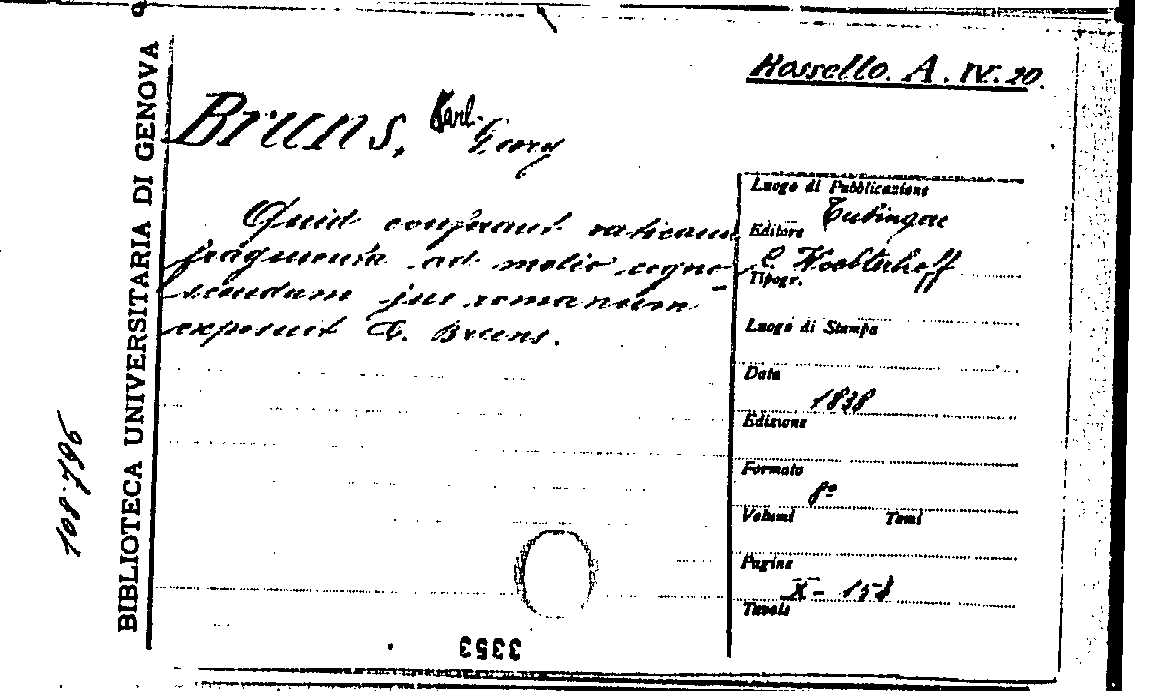 BIBLIOTECA UNIVERSITARIA DI GENOVA
108.796
Rossello. A. IV. 20.
Bruns, Karl Georg
Quid conferant vaticana
fragmenta ad melio cogno-
scendum jus romanum
exposuit C. Bruns.
Luogo di Pubblicazione
Tubingae
Editore
Tipogr.
Luogo di Stampa
Data
1838
Edizione
Formato
8º
Volumi Tomi
Pagine
X - 158
Tavole
3353